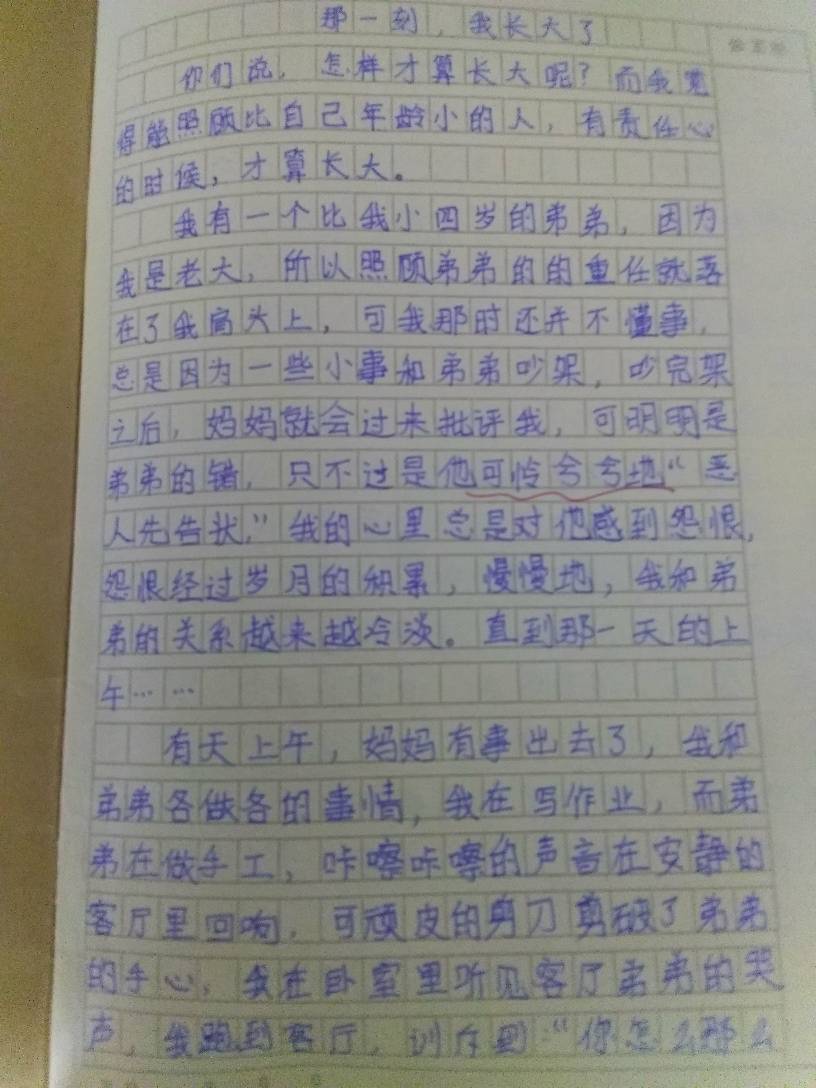 那一刻，我长大了
你们说，怎样才算长大呢？而我觉
得能照顾比自己年龄小的人，有责任心
的时候，才算长大。
我有一个比我小四岁的弟弟，因为
我是老大，所以照顾弟弟的的重任就落
在了我肩头上，可我那时还并不懂事，
总是因为一些小事和弟弟吵架，吵完架
之后，妈妈就会过来批评我，可明明是
弟弟的错，只不过是他可怜兮兮地“恶
人先告状，”我的心里总是对他感到怨恨，
怨恨经过岁月的积累，慢慢地，我和弟
弟的关系越来越冷淡。直到那一天的上
午……
有天上午，妈妈有事出去了，我和
弟弟各做各的事情，我在写作业，而弟
弟在做手工，咔嚓咔嚓的声音在安静的
客厅里回响，可顽皮的剪刀剪破了弟弟
的手心，我在卧室里听见客厅弟弟的哭
声，我跑到客厅，训斥到：“你怎么那么